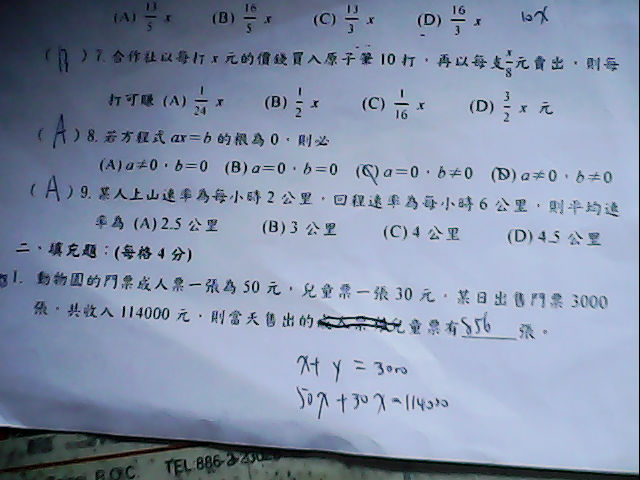 (A) 13/5 x (B) 16/5 x (C) 13/3 x (D) 16/3 x 10x
(B) 7. 合作社以每打 x 元的價錢買入原子筆 10 打，再以每支 x/8 元賣出，則每
打可賺 (A) 1/24 x (B) 1/2 x (C) 1/16 x (D) 3/2 x 元
(A) 8. 若方程式 ax=b 的根為 0，則必
(A) a≠0，b=0 (B) a=0，b=0 (C) a=0，b≠0 (D) a≠0，b≠0
(A) 9. 某人上山速率為每小時 2 公里，回程速率為每小時 6 公里，則平均速
率為 (A) 2.5 公里 (B) 3 公里 (C) 4 公里 (D) 4.5 公里
二、填充題：(每格 4 分)
1. 動物園的門票成人票一張為 50 元，兒童票一張 30 元，某日出售門票 3000
張，共收入 114000 元，則當天售出的兒童票有 856 張。
x+y=3000
50x+30x=114000
R.O.C. TEL:886-2-